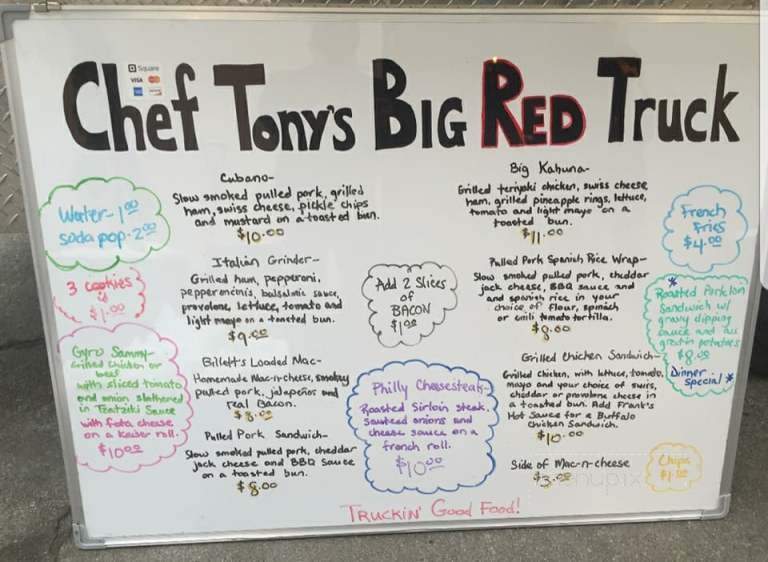 Square
VISA
Chef Tony's Big Red Truck
Water- 1.00
soda pop- 2.00
3 cookies
$1.00
Gyro Sammy-
Grilled chicken or
beef
with sliced tomato
and onion slathered
in Tzatziki Sauce
with feta cheese
on a Kaiser roll.
$10.00
Cubano-
Slow smoked pulled pork, grilled
ham, swiss cheese, pickle chips
and mustard on a toasted bun.
$10.00
Italian Grinder-
Grilled ham, pepperoni,
pepperoncinis, balsalmic sauce,
provolone, lettuce, tomato and
light mayo on a toasted bun.
$9.00
Billett's Loaded Mac-
Homemade Mac-n-cheese, smokey
pulled pork, jalepeños and
real Bacon.
$8.00
Pulled Pork Sandwich-
Slow smoked pulled pork, cheddar
jack cheese and BBQ Sauce
on a toasted bun.
$8.00
Add 2 Slices
of
BACON
$1.00
Philly Cheesesteak-
Roasted Sirloin steak,
sauteed onions and
cheese sauce on a
french roll.
$10.00
Big Kahuna-
Grilled teriyaki chicken, swiss cheese,
ham, grilled pineapple rings, lettuce,
tomato and light mayo on a
toasted bun.
$11.00
Pulled Pork Spanish Rice Wrap-
Slow smoked pulled pork, cheddar
jack cheese, BBQ sauce and
and spanish rice in your
choice of flour, spinach
or chili tomato tortilla.
Grilled Chicken Sandwich-
Grilled Chicken, with lettuce, tomato,
mayo and your choice of swiss,
cheddar or provolone cheese in
a toasted bun. Add Frank's
Hot Sauce for a Buffalo
Chicken Sandwich.
$10.00
Side of Mac-n-cheese
$3.00
French
Fries
$4.00
Roasted Pork loin
Sandwich w/
gravy dipping
sauce and au
gratin potatoes
$8.00
Dinner
special *
Chips
$1.00
Truckin' Good Food!
menupix